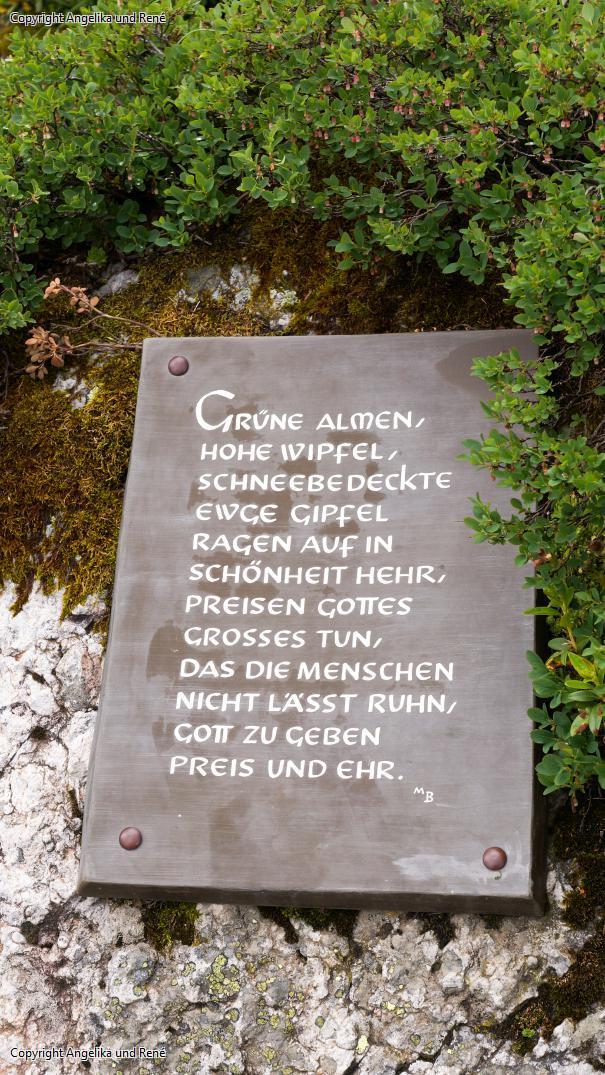 Copyright Angelika und René
GRÜNE ALMEN,
HOHE WIPFEL,
SCHNEEBEDECKTE
EWGE GIPFEL
RAGEN AUF IN
SCHÖNHEIT HEHR,
PREISEN GOTTES
GROSSES TUN,
DAS DIE MENSCHEN
NICHT LÄSST RUHN,
GOTT ZU GEBEN
PREIS UND EHR.
MB
Copyright Angelika und René